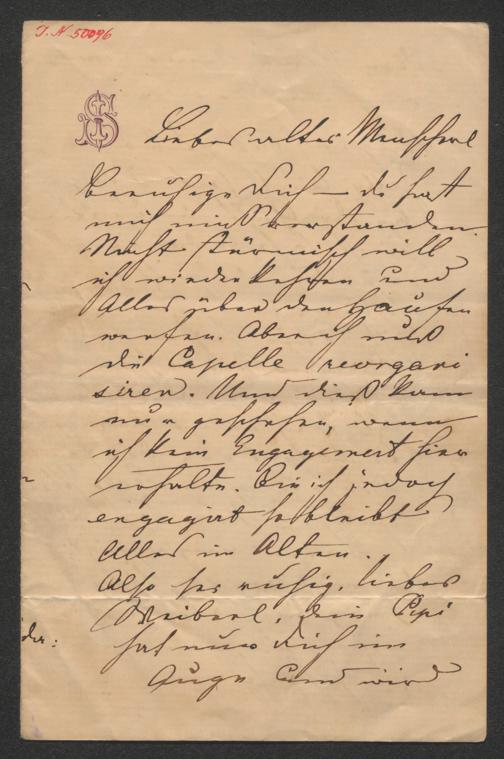 I. N. 50096
JS
Liebes altes Menscherl
beruhige Dich – du hast
mich mißverstanden.
Nicht stürmisch will
ich wiederkehren und
Alles über den Haufen
werfen. Aber ich muß
die Capelle reorgani
siren. Und dieß kann
nur geschehen, wenn
ich kein Engagement hier
erhalte. Bin ich jedoch
engagirt so bleibt
Alles im Alten.
Also sei ruhig, liebes
Weiberl, dein Pepi
hat nur Dich im
Auge und wird